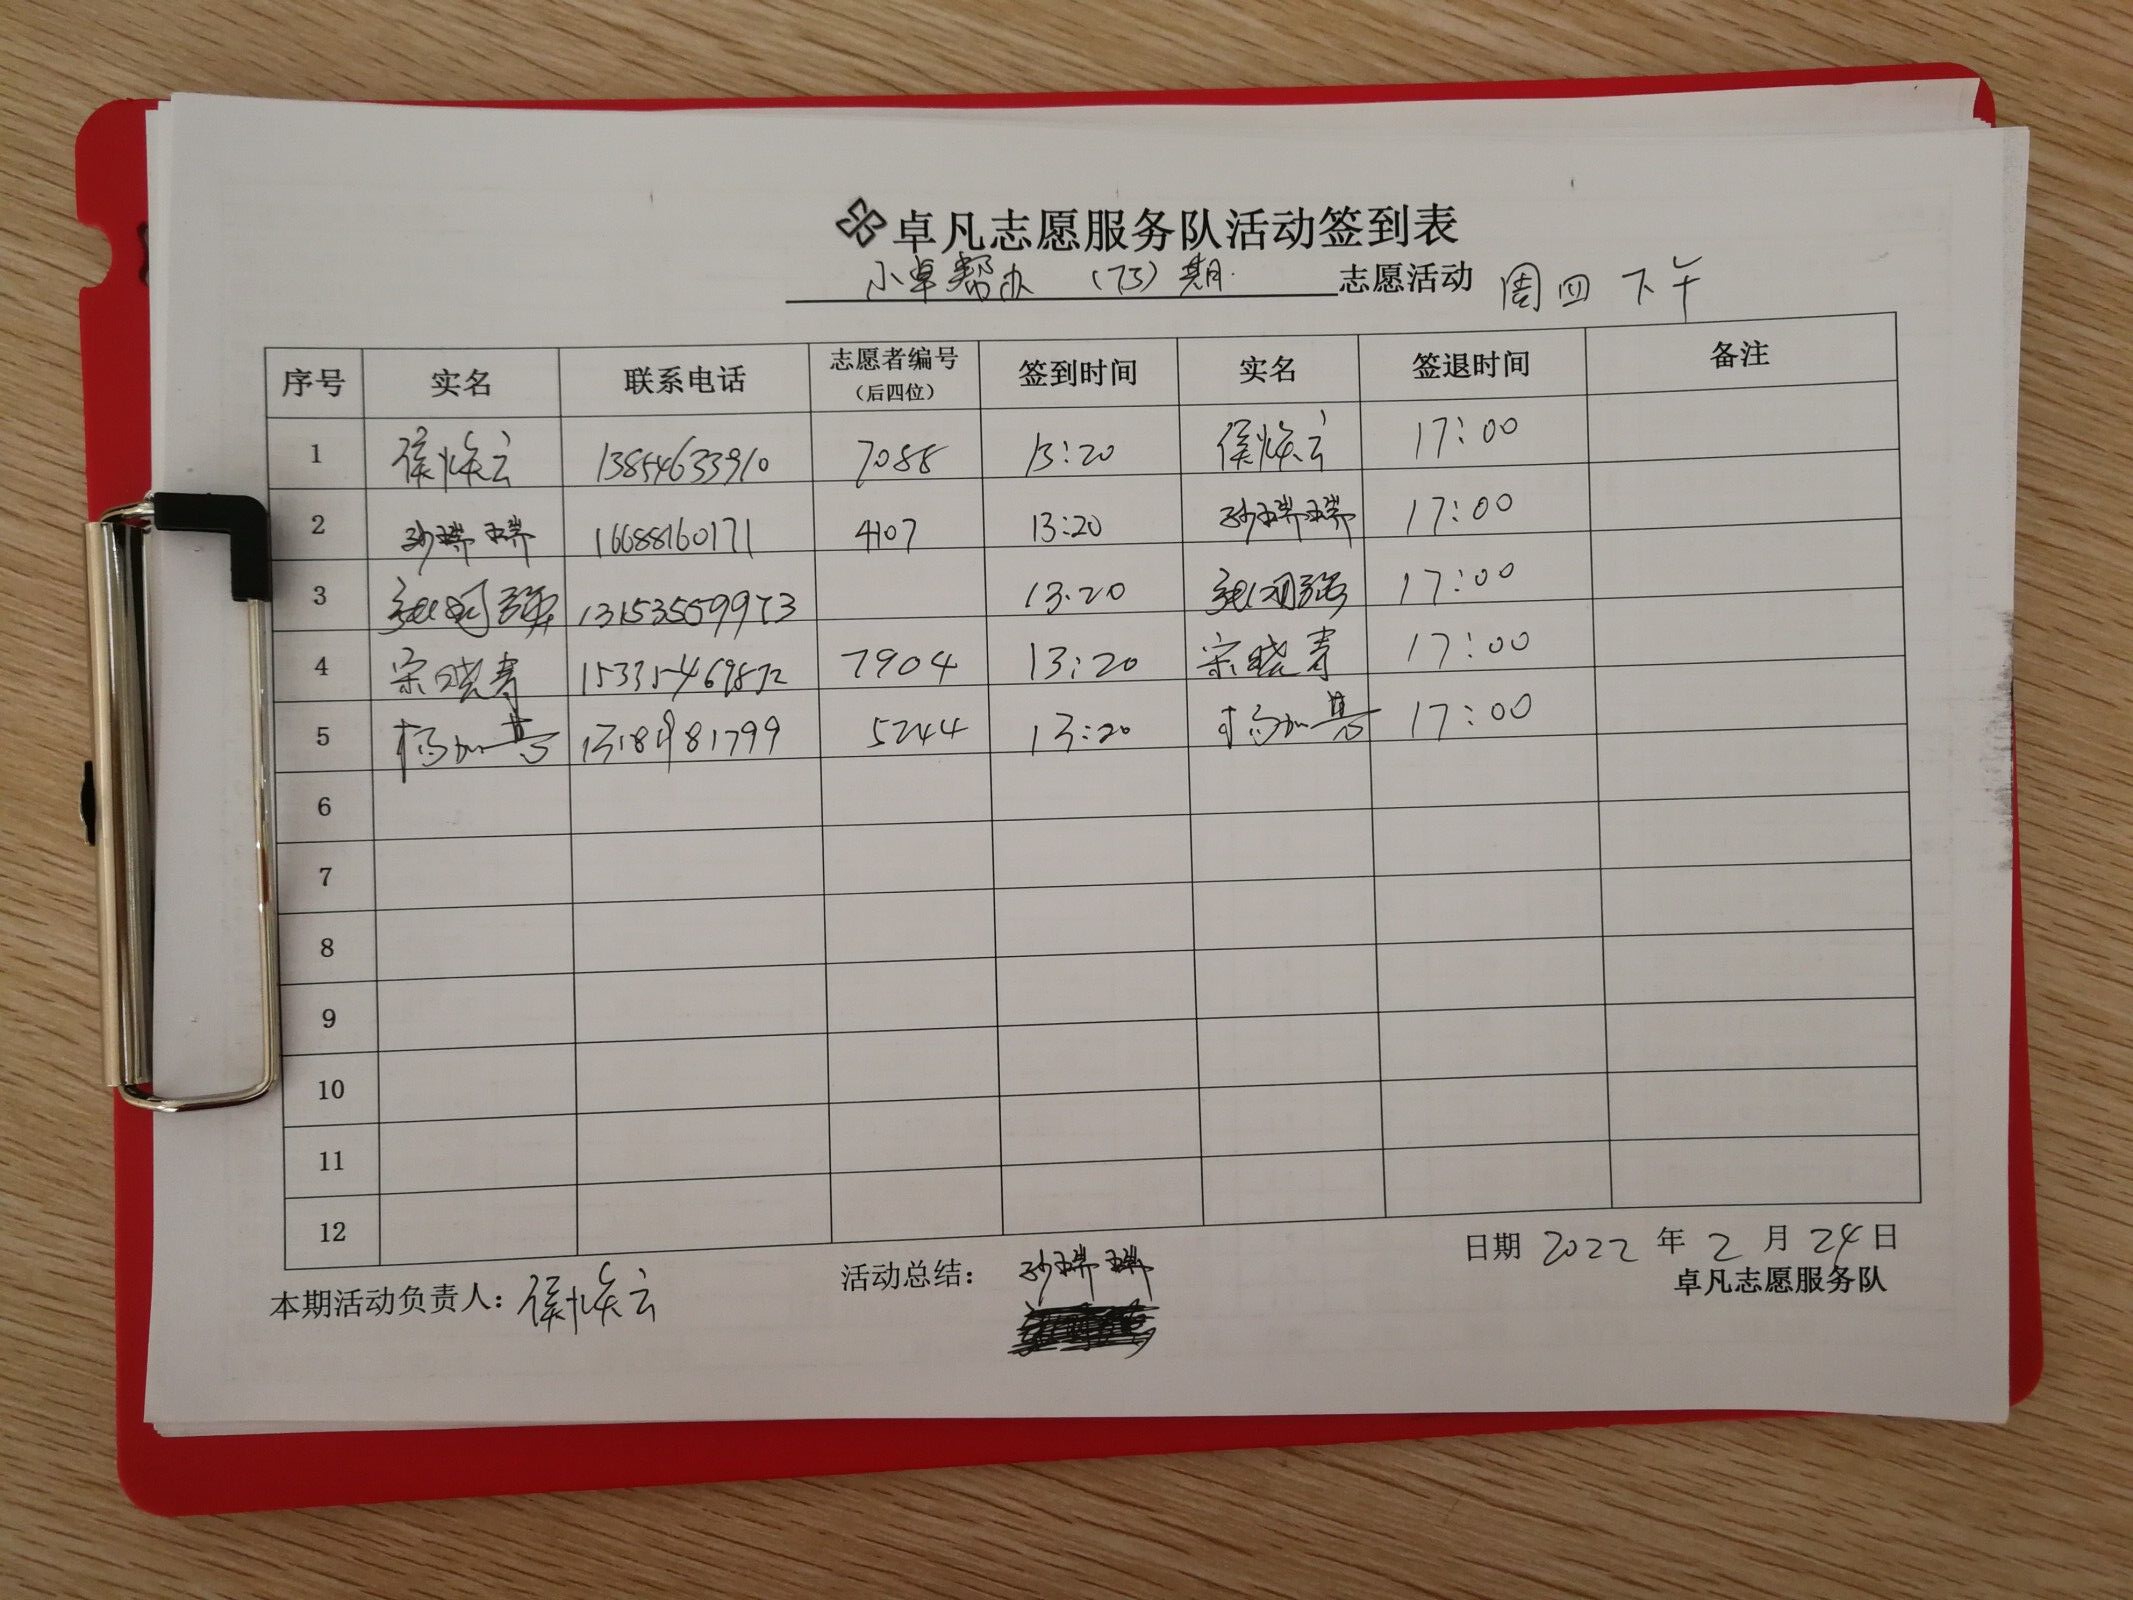 卓凡志愿服务队活动签到表
小卓帮办 (73) 期 志愿活动 周四下午
序号 实名 联系电话 志愿者编号 (后四位) 签到时间 实名 签退时间 备注
1 侯焕云 13854633910 7088 13:20 侯焕云 17:00
2 瑞瑞 16688160171 4107 13:20 瑞瑞 17:00
3 13153559973 13:20 17:00
4 宋晓青 7904 13:20 宋晓青 17:00
5 杨加 5244 13:20 杨加 17:00
6
7
8
9
10
11
12
本期活动负责人: 侯焕云 活动总结: 瑞瑞 日期 2022 年 2 月 24 日
卓凡志愿服务队